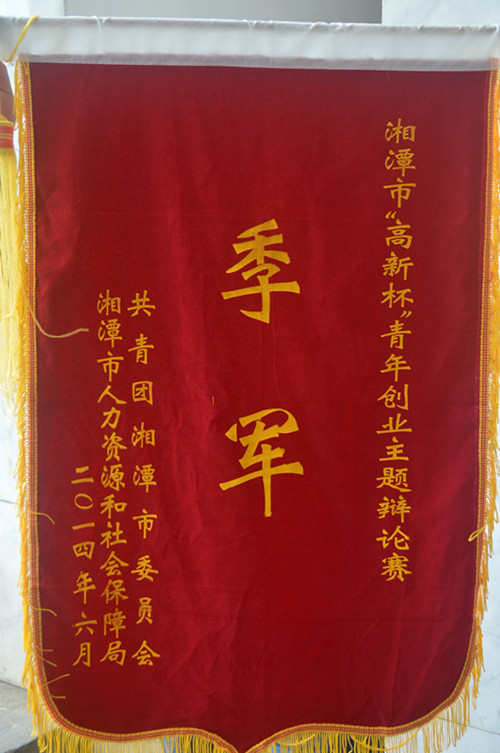 湘潭市“高新杯”青年创业主题辩论赛
季军
共青团湘潭市委员会
湘潭市人力资源和社会保障局
二〇一四年六月